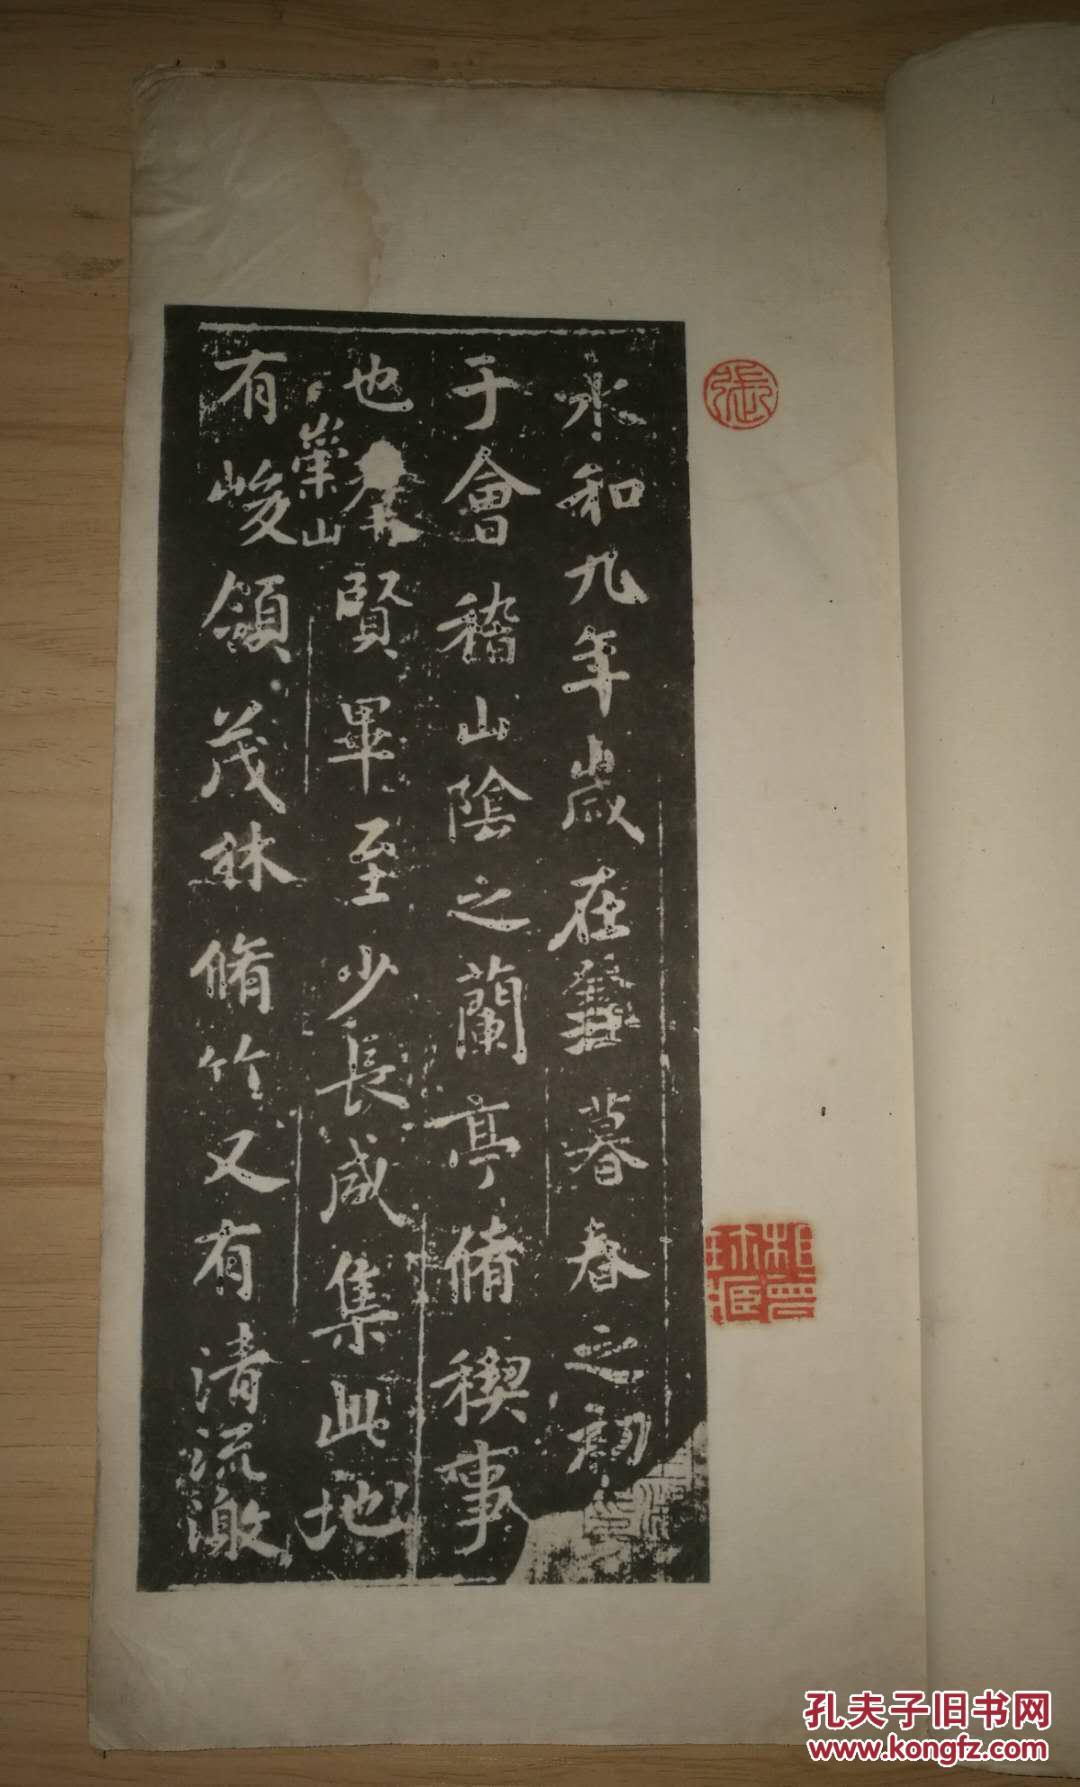 永和九年歲在癸丑暮春之初會
于會稽山陰之蘭亭脩稧事
也羣賢畢至少長咸集此地
崇山
有峻領茂林脩竹又有清流激
張
孔夫子旧书网
www.kongfz.com